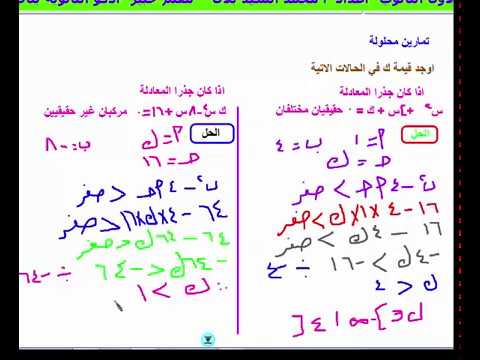 تمارين محلولة
اوجد قيمة ك في الحالات الاتية
اذا كان جذرا المعادلة
س٢ + ٤س + ك = ٠ حقيقيان مختلفان
الحل
أ = ١ ب = ٤
حـ = ك
ب٢ - ٤ أ حـ > صفر
١٦ - ٤ × ١ × ك > صفر
١٦ - ٤ ك > صفر
- ٤ ك > - ١٦ ÷ - ٤
ك < ٤
ك ∈ ] - ∞ ، ٤ [
اذا كان جذرا المعادلة
ك س٢ - ٨ س + ١٦ = ٠ مركبان غير حقيقيين
الحل
أ = ك ب = - ٨
حـ = ١٦
ب٢ - ٤ أ حـ < صفر
٦٤ - ٤ × ك × ١٦ < صفر
٦٤ - ٦٤ ك < صفر
- ٦٤ ك < - ٦٤ ÷ - ٦٤
∴ ك > ١